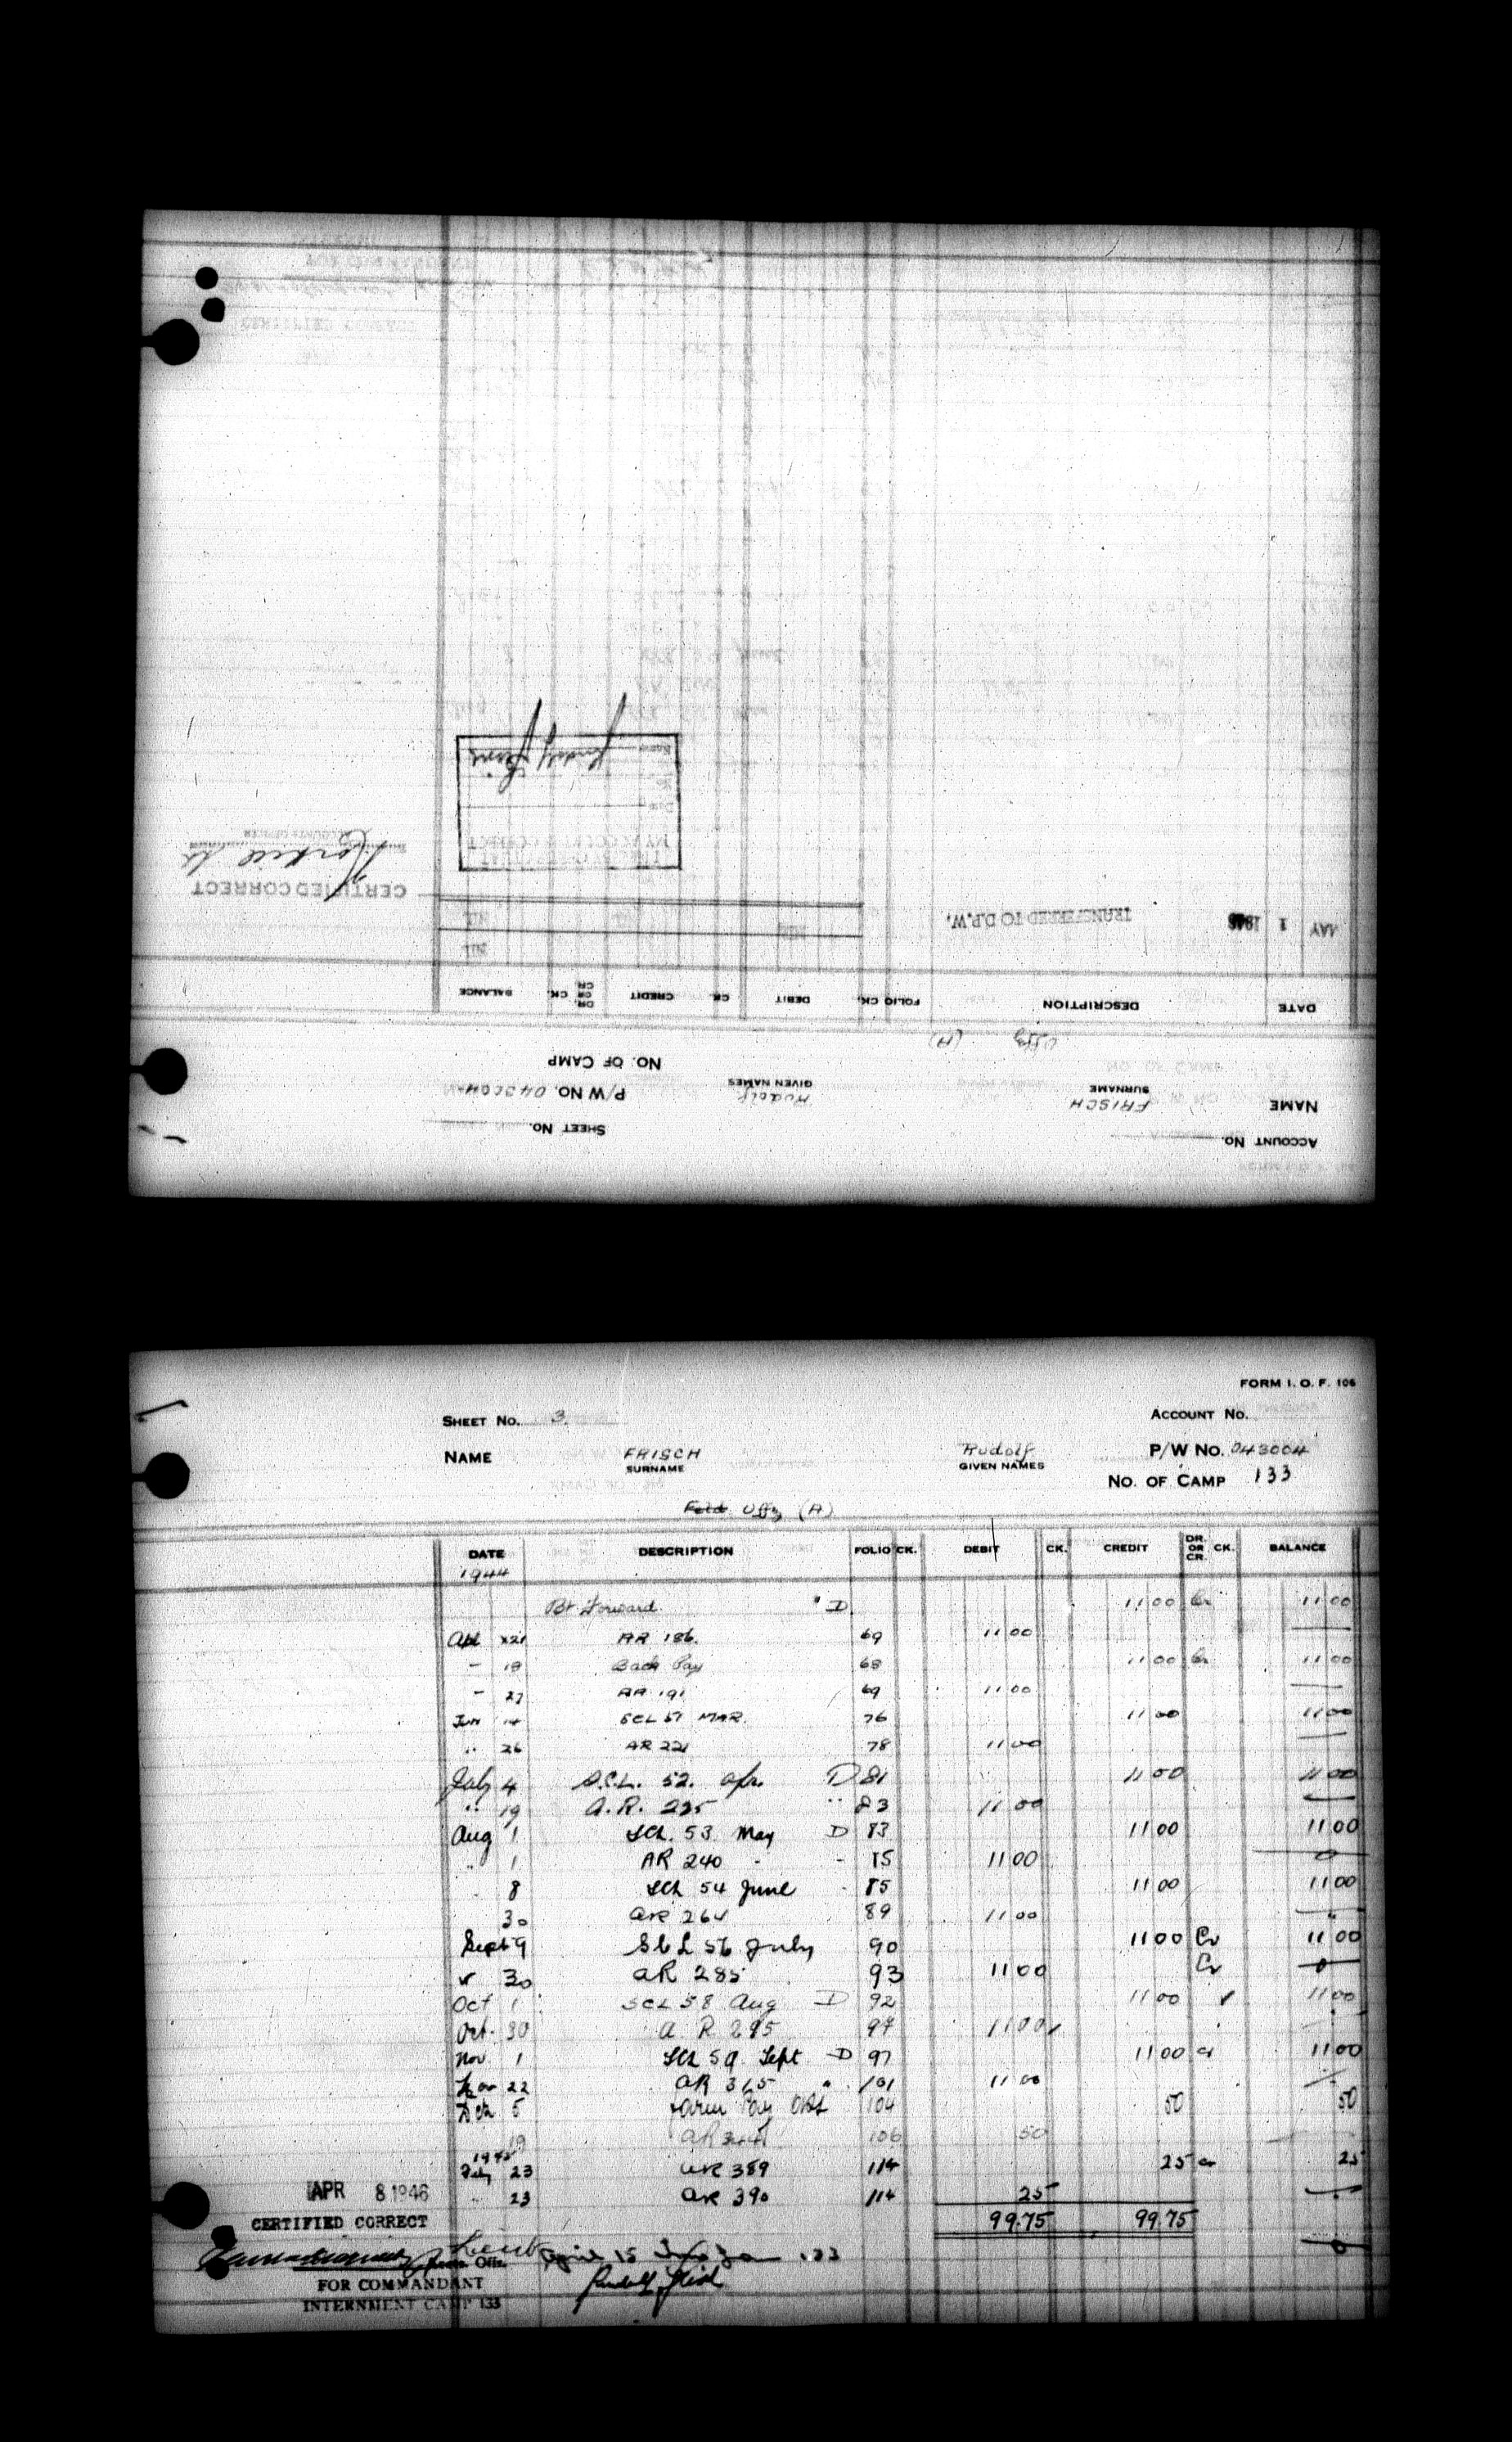 ACCOUNT No.
SHEET No.
NAME FRISCH Rudolf P/W No. 043004
SURNAME GIVEN NAMES
NO. OF CAMP
Uffz (A)
DATE DESCRIPTION FOLIO CK. DEBIT CK. CREDIT DR. OR CR. CK. BALANCE
NIL
MAY 1 TRANSFERRED TO D.P.W. NIL NIL
CERTIFIED CORRECT
ACCOUNTS OFFICER
MY ACCOUNT IS CORRECT
FORM I. O. F. 106
SHEET No. 3 ACCOUNT No.
NAME FRISCH Rudolf P/W No. 043004
SURNAME GIVEN NAMES
No. OF CAMP 133
Feld Uffz (A)
DATE DESCRIPTION FOLIO CK. DEBIT CK. CREDIT DR. OR CR. CK. BALANCE
1944
Bt. Forward " D 11 00 Cr 11 00
Apl 21 AR 186. 69 11 00 —
- 19 Back Pay 68 11 00 Cr 11 00
- 27 AR 191 69 11 00 —
Jun 14 SCL 51 MAR. 76 11 00 11 00
" 26 AR 221 78 11 00 —
July 4 S.C.L. 52. Apr. D 81 11 00 11 00
" 19 A.R. 235 " 83 11 00 —
Aug 1 SCL. 53 May D 83 11 00 11 00
" 1 AR 240 - - 85 11 00 0
" 8 SCL 54 June - 85 11 00 11 00
30 AR 264 89 11 00 —
Sept 9 SCL 56 July 90 11 00 Cr 11 00
" 30 AR 285 93 11 00 Cr 0
Oct 1 SCL 58 Aug D 92 11 00 ✓ 11 00
Oct. 30 A. R. 295 97 11 00 ✓ —
Nov 1 SCL 59 Sept D 97 11 00 Cr 11 00
Nov 22 AR 315 " 101 11 00 —
Dec 5 Farm Pay Oct 104 50 50
19 AR 341 106 50 —
1945
Feby 23 AR 389 114 25 Cr 25
" 23 AR 390 114 25 —
99.75 99.75
0
APR 8 1946
CERTIFIED CORRECT
Lieut
Accts. Offr.
April 15 133
FOR COMMANDANT
INTERNMENT CAMP 133
Rudolf Frisch